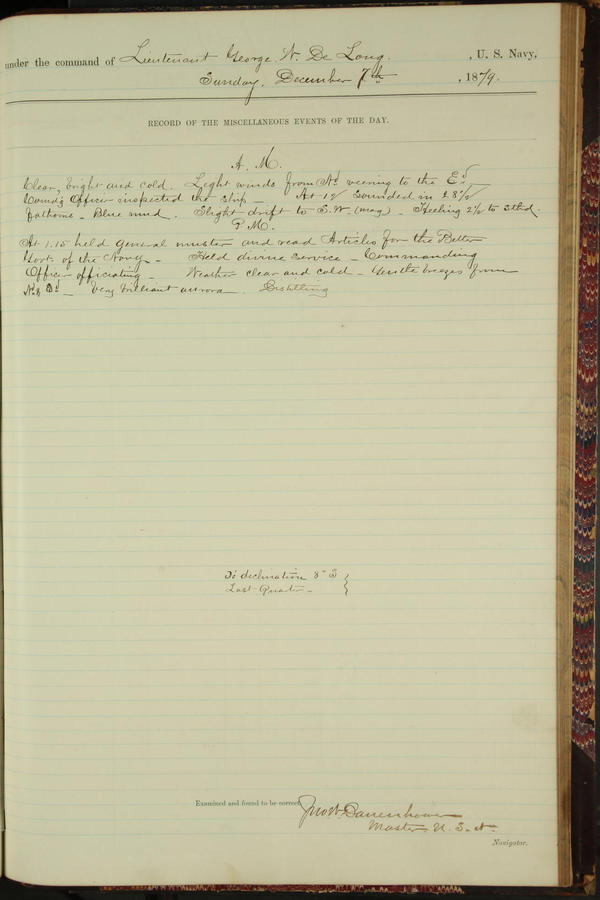 under the command of Lieutenant George. W. De Long. , U. S. Navy,
Sunday, December 7th , 1879.
RECORD OF THE MISCELLANEOUS EVENTS OF THE DAY.
A. M.
Clear, bright and cold. Light winds from Nd veering to the Ed
Comd'g Officer inspected the ship — At 12 sounded in 28 1/2
fathoms – Blue mud. Slight drift to S. W. (mag) – Heeling 2 1/2 to stbd.
P. M.
At 1.15 held general muster and read Articles for the Better
Govt. of the Navy – Held divine service – Commanding
Officer officiating – Weather clear and cold – Gentle breezes from
Very brilliant aurora.
declination 8° S
Last Quarter –
Examined and found to be correct,
Jno W. Danenhower
Master U. S. N.
Navigator.